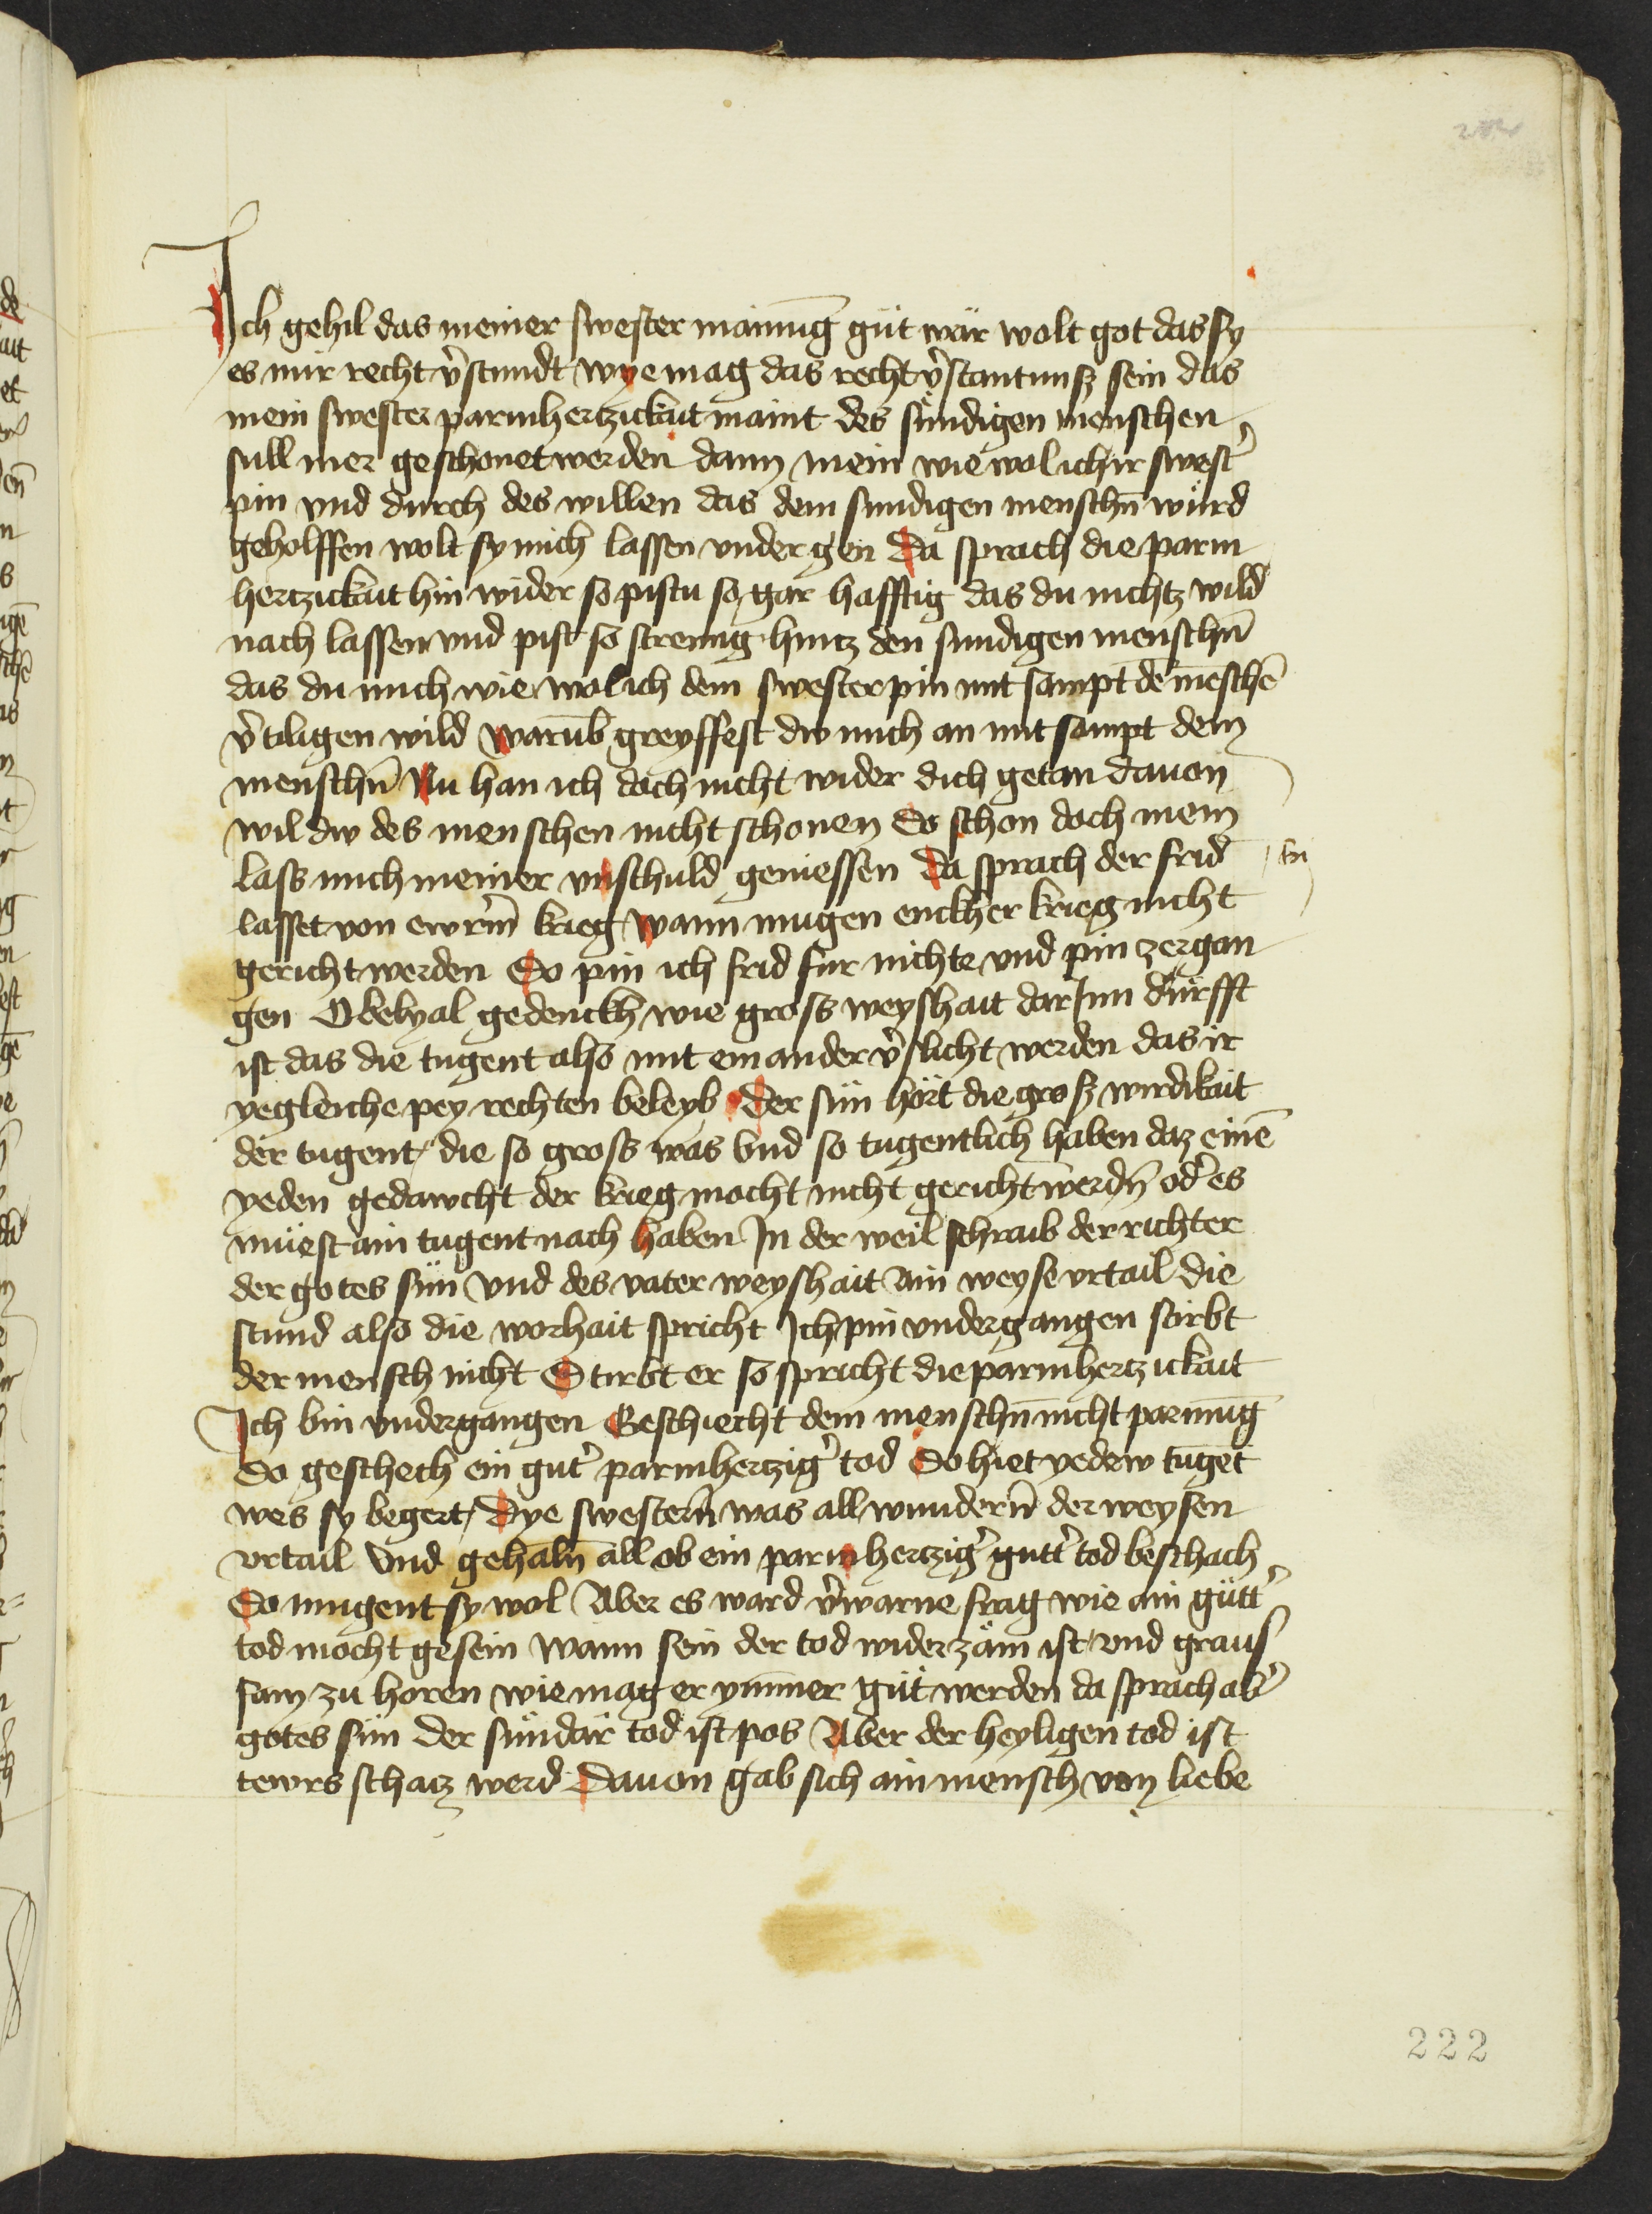 Ich gehil das meiner swester mainūg güt wär wolt got das sy
es mir recht v̄stundt wye mag das recht v̄stantnuß sein das
mein swester parmhertzickait maint des sündigen menschen
süll mer geschonet werden dann mein wie wol ich ir swest̄
pin vnd durch des willen das dem sundigen menschn̄ würd
geholffen wolt sy mich lassen vnder gen Da sprach die parm
hertzickait hin wider so pistu so gar hafftig das du nichtz wild
nach lassen vnd pist so streng hintz den sundigen menschn̄
das du mich wie wol ich dein swester pin mit sampt dē mēschē
v̄tiligen wild warūb greyffest dw mich an mit sampt dem
menschn̄ Nu han ich doch nicht wider dich getan dauon
wil dw des menschen nicht schonen So schon doch mein
lass mich meiner vnschuld geniessen Da sprach der frid
lasset von ewrm̄ krieg wann mugen enckher krieg nicht
gericht werden So pin ich frid fur nichte vnd pin zergan
gen O belyal gedenckh wie gross weyshait dar Inn dürfft
ist das die tugent also mit einander v̄slicht werden das ir
yegleiche pey rechten beleyb Der sün hört die groß wirdikait
der tugent die so gross was vnd so tugentlich haben daz einē
yeden gedawcht der krieg mocht nicht gericht werdn̄ od̄ es
müest ain tugent nach haben In der weil schraib der richter
der gotes sün vnd des vater weyshait Ain weyse vrtail die
stund also die worhait spricht Ich pin vndergangen stirbt
der mensch nicht Stirbt er so spricht die parmhertzickait
Ich bin vndergangen Geschiecht dem menschn̄ nicht parmūg
So geschech ein gut̄ parmhertziḡ tod So hiet yedew tugēt
wes sy begert Dye swestern̄ was all wundern̄ der weysen
vrtail Vnd gehaln̄ all ob ein parmhertziḡ gutt̄ tod beschach
So mugent sy wol Aber es ward v̄warne frag wie ain gütt̄
tod mocht gesein Wann sein der tod widerzäm ist vnd graus
sam zu horen wie mag er ym̄mer güt werden da sprach ab̄
gotes sün der sündär tod ist pos Aber der heyligen tod ist
tewrs schatz werd Dauon gab sich ain mensch von liebe
222